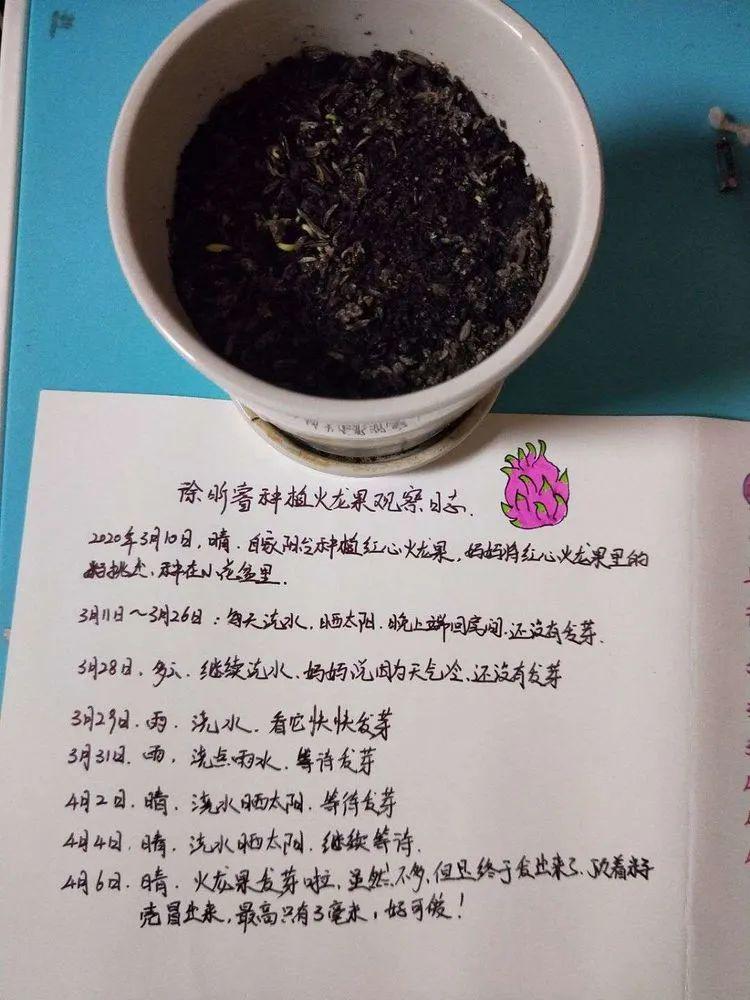 徐昕蕾种植火龙果观察日志.
2020年3月10日,晴.自家阳台种植红心火龙果,妈妈将红心火龙果里的
籽挑出,种在小花盆里.
3月11日～3月26日:每天浇水,晒太阳.晚上端回房间,还没有发芽.
3月28日,多云.继续浇水.妈妈说因为天气冷,还没有发芽
3月29日.雨.浇水.看它快快发芽
3月31日.雨,浇点雨水.等待发芽
4月2日.晴.浇水晒太阳.等待发芽
4月4日.晴.浇水晒太阳.继续等待.
4月6日.晴.火龙果发芽啦,虽然不多,但是终于发出来了.顶着籽
壳冒出来,最高只有3毫米,好可爱!